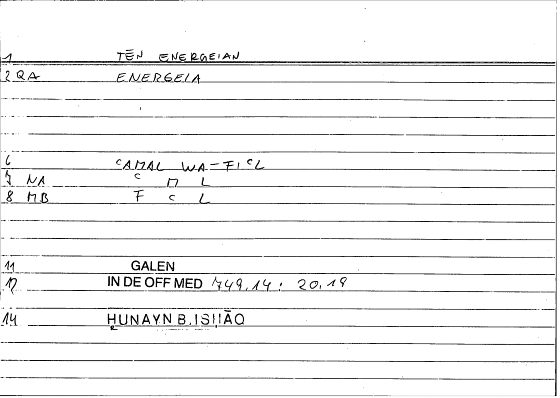 1 TĒN ENERGEIAN
2 QA ENERGEIA
6 ʿAMAL WA-FIʿL
7 NA ʿ M L
8 MB F ʿ L
11 GALEN
12 IN DE OFF MED 749,14 : 20,19
14 ḤUNAYN B. ISḤĀQ